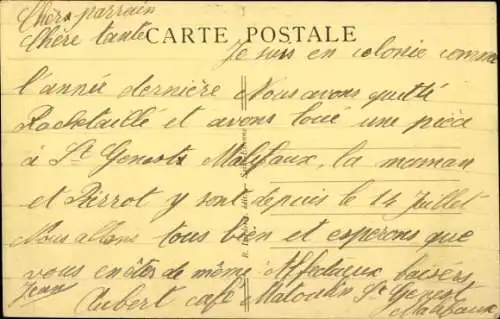 Cher parrain
Chère tante
CARTE POSTALE
Je suis en colonie comme
l'année dernière Nous avons quitté
Rochetaillé et avons loué une pièce
à St Genest Malifaux, la maman
et Pierrot y sont depuis le 14 Juillet
Nous allons tous bien et espérons que
vous en êtes de même. Affectueux baisers
Jean
Aubert café Matoulin St Genest
Malifaux